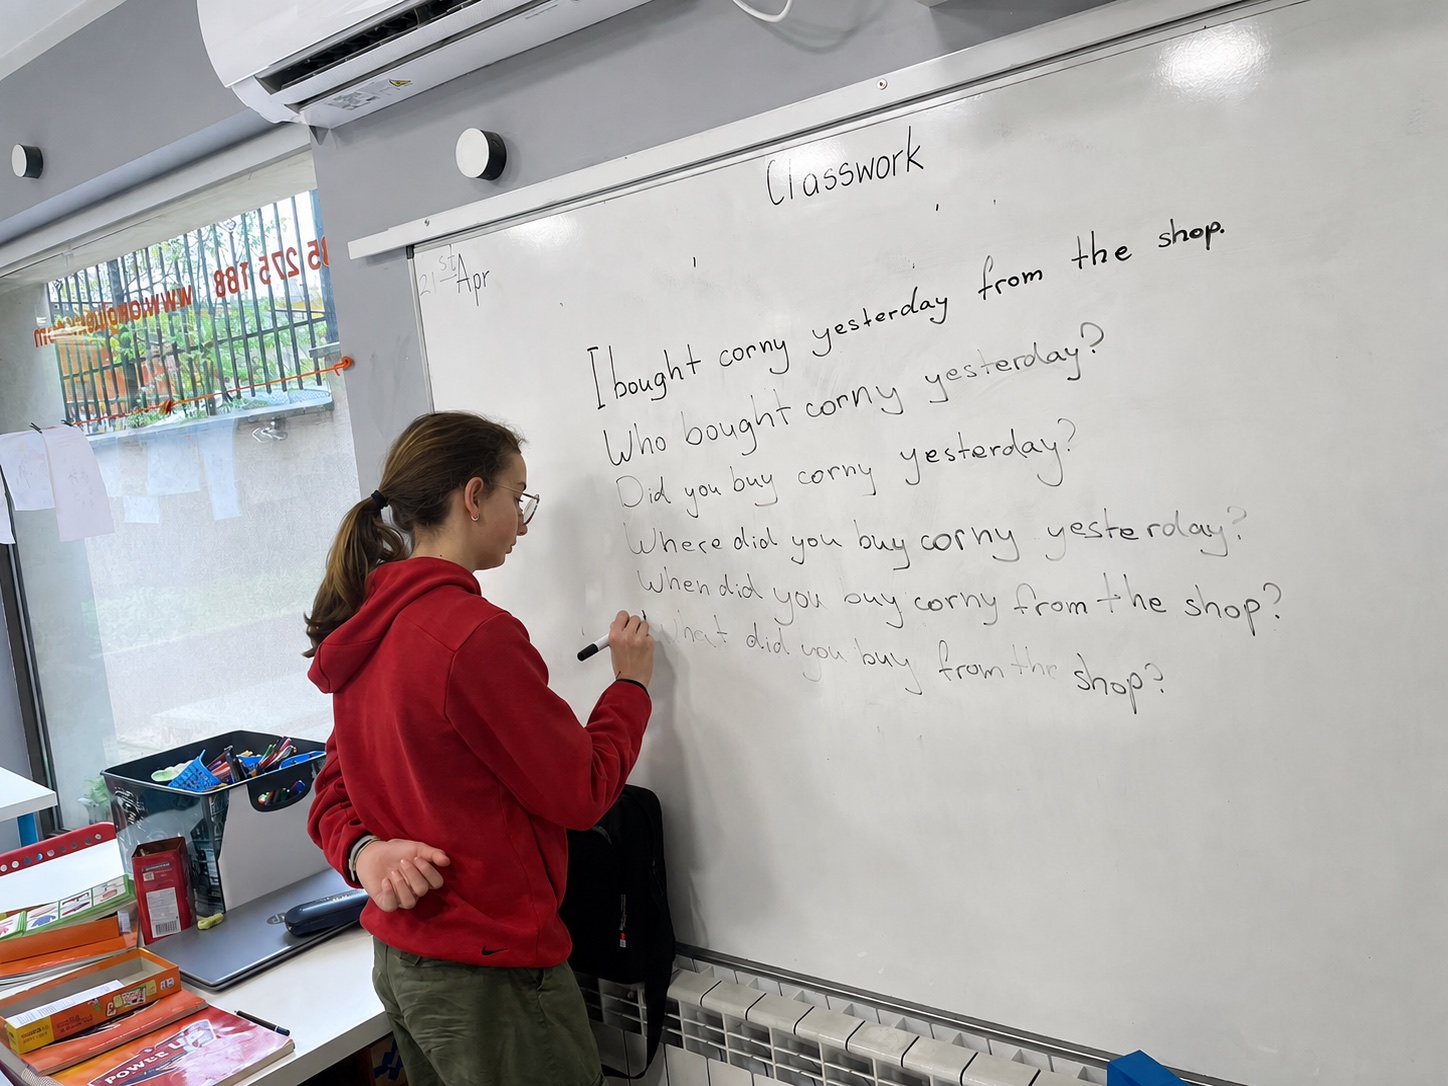 Classwork
21st Apr
I bought corny yesterday from the shop.
Who bought corny yesterday?
Did you buy corny yesterday?
Where did you buy corny yesterday?
When did you buy corny from the shop?
What did you buy from the shop?
85 275 188
POWER UP